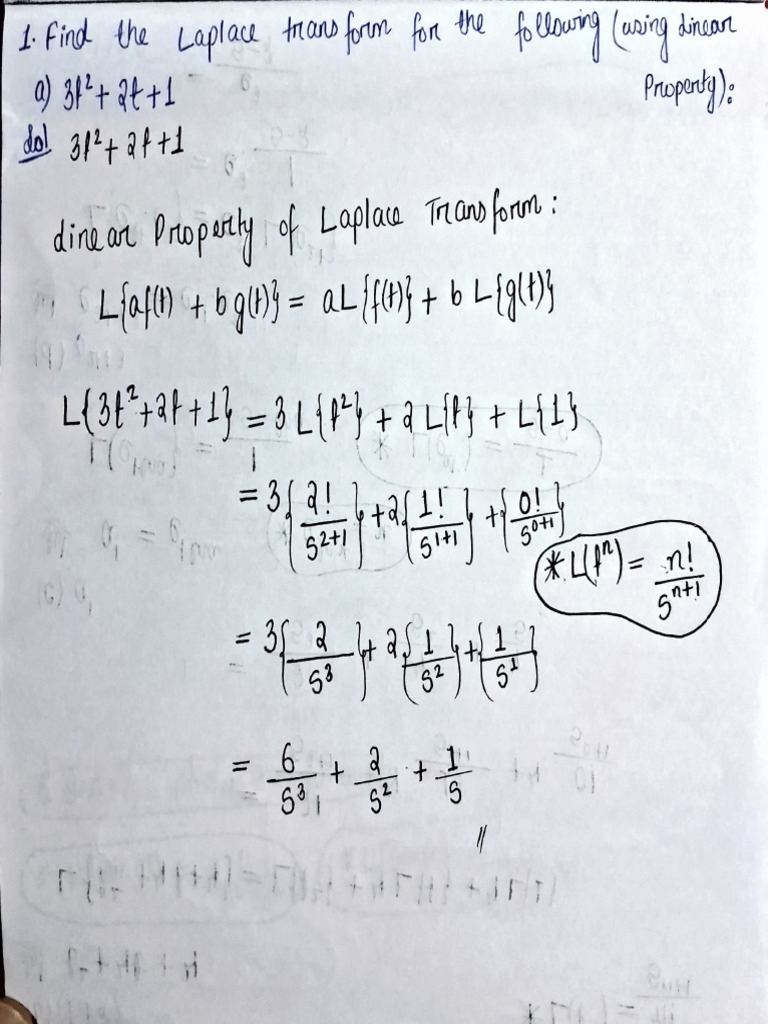 1. Find the Laplace transform for the following (using Linear Property):
a) 3t² + 2t + 1
Sol 3t² + 2t + 1
Linear Property of Laplace Transform:
L{af(t) + bg(t)} = aL{f(t)} + b L{g(t)}
L{3t² + 2t + 1} = 3 L{t²} + 2 L{t} + L{1}
= 3{2!/s^(2+1)} + 2{1!/s^(1+1)} + {0!/s^(0+1)}
* L(tⁿ) = n!/s^(n+1)
= 3{2/s³} + 2{1/s²} + {1/s¹}
= 6/s³ + 2/s² + 1/s //